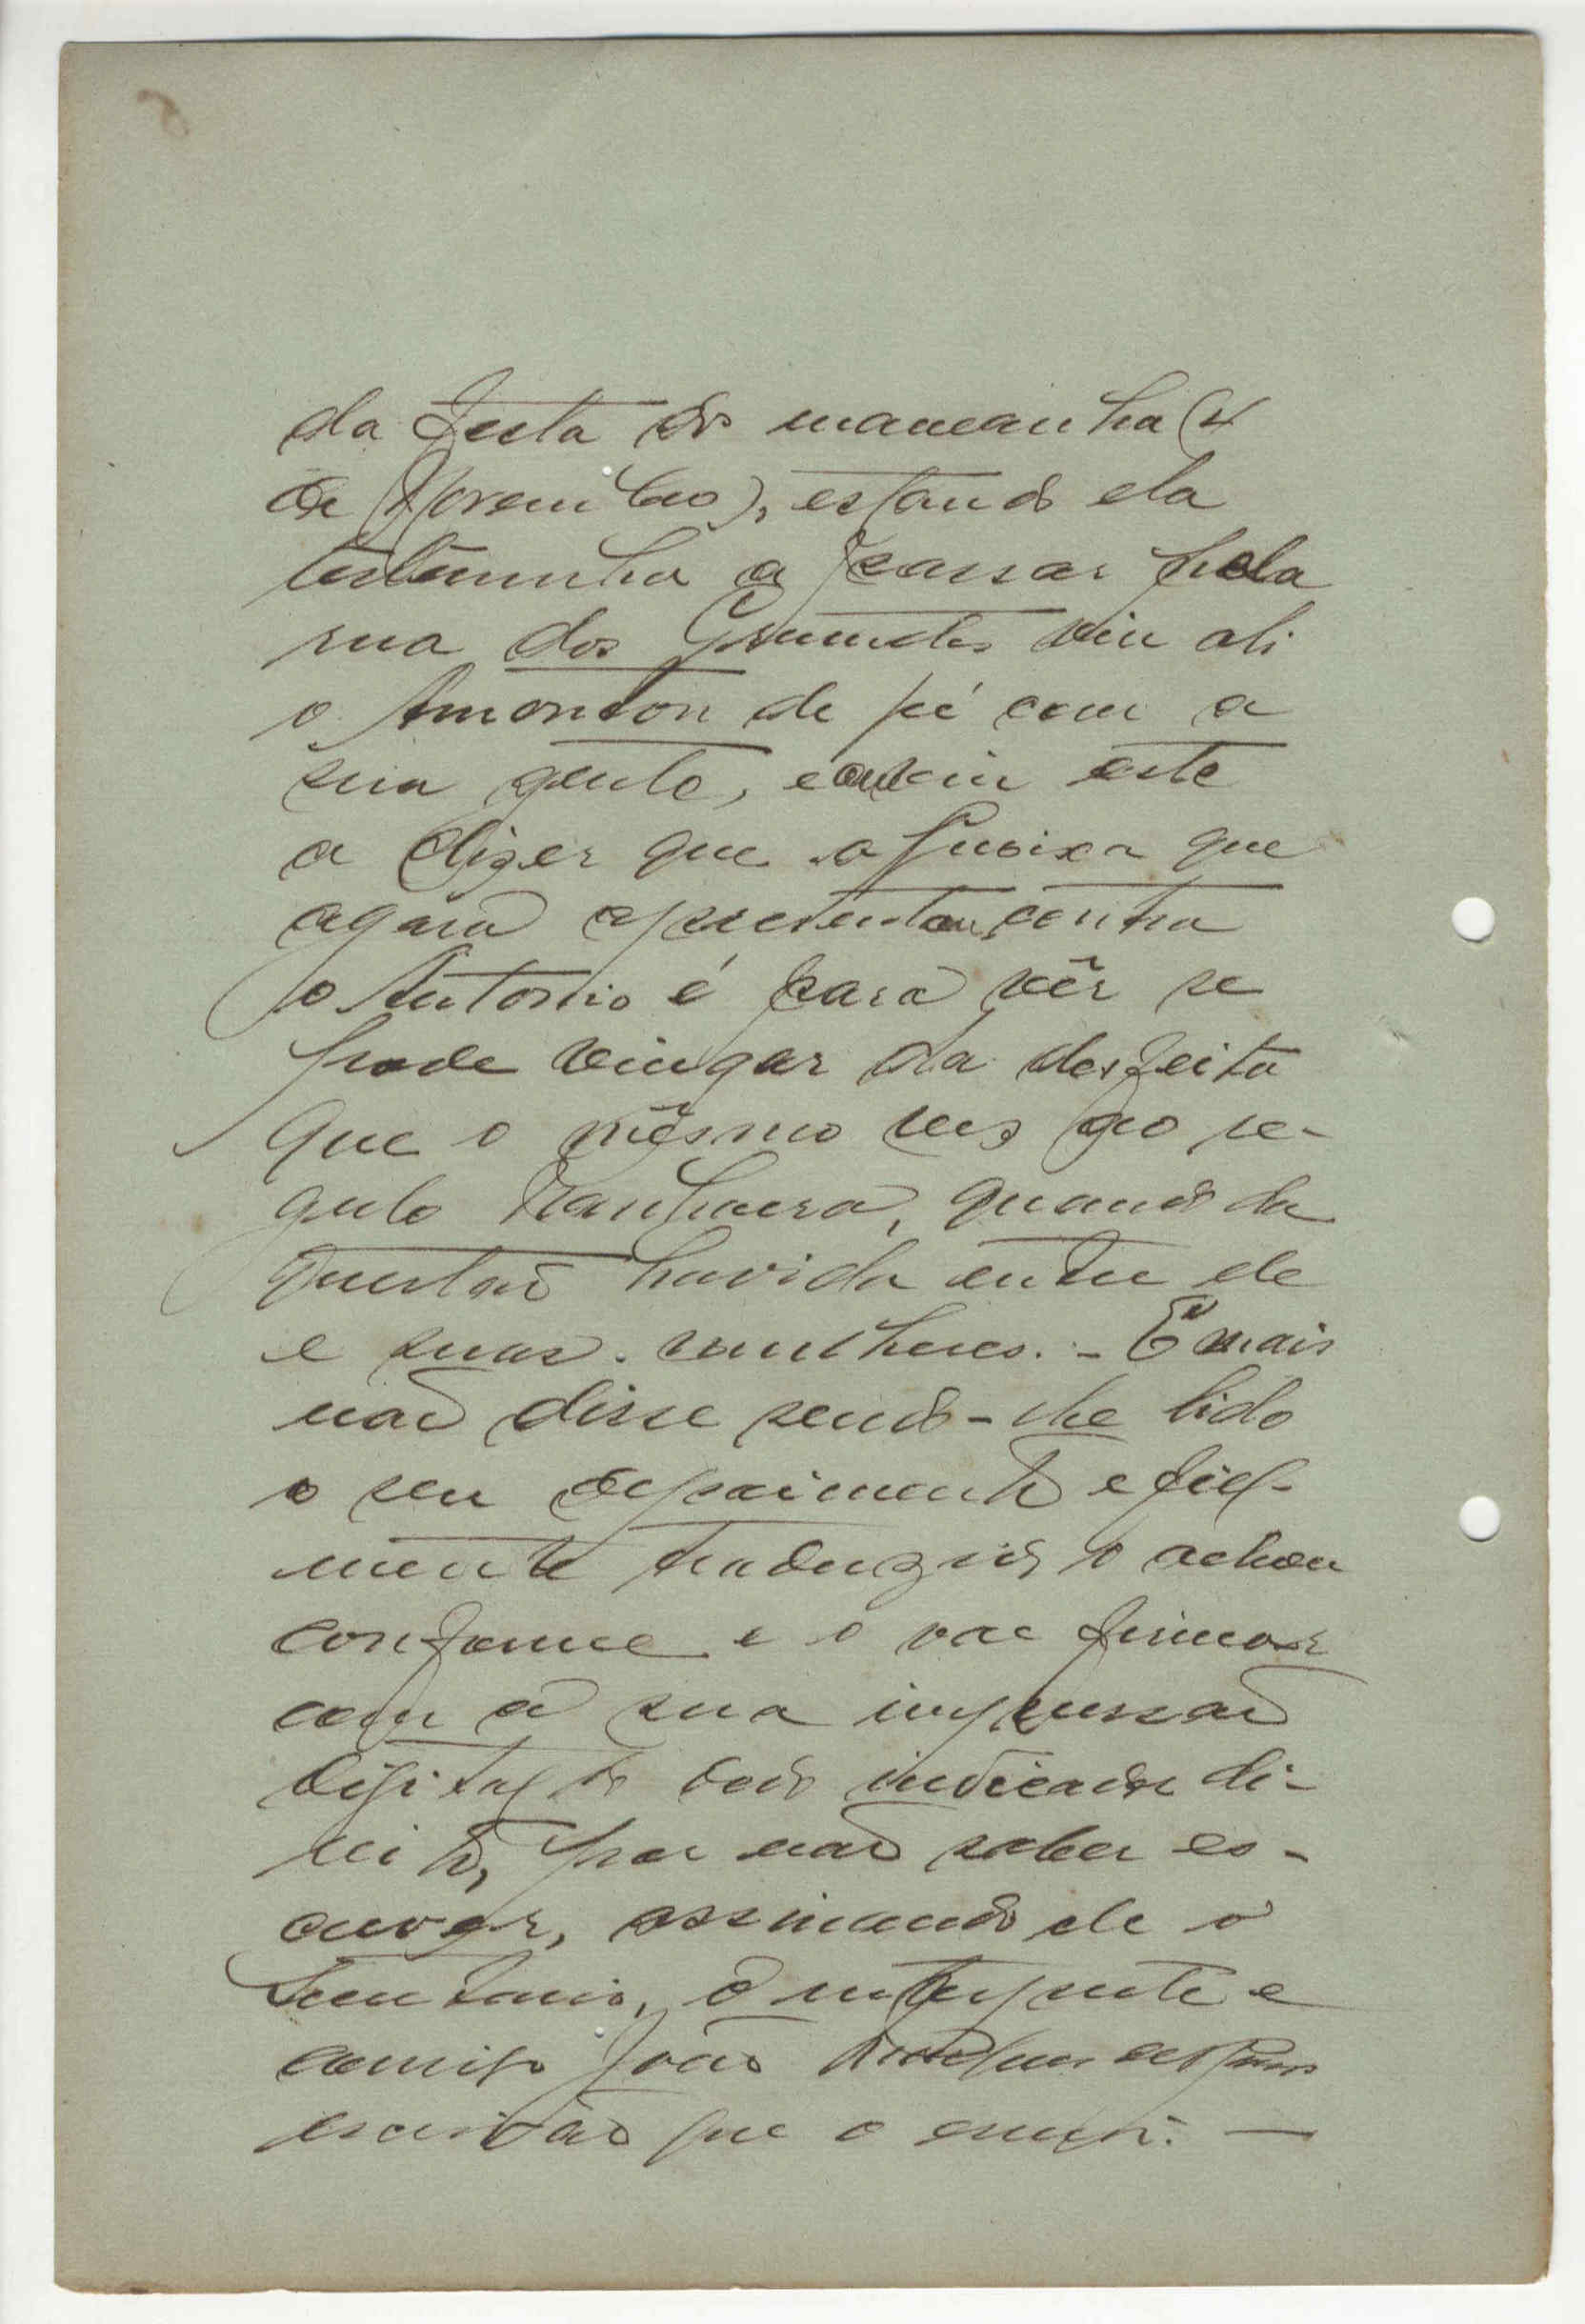 da festa do mancanha (4
de Novembro), estando ela
testemunha a passar pela
rua dos Grumetes viu ali
o Amonton de pé com a
sua gente, e ouviu este
a dizer que a queixa que
agora apresentou contra
o Antonio é para vêr se
pode vingar da desfeita
que o mêsmo fez ao re-
gulo , quando da
questão havida entre ele
e suas mulheres. - E mais
não disse sendo-lhe lido
o seu depoimento e fiel-
mente traduzido o achou
conforme e o vae firmar
com a sua impressão
digital do dedo indicador di-
reito, por não saber es-
crever, assinando ele o
Secretario, o interprete e
comigo João
escrivão que o escrevi. —